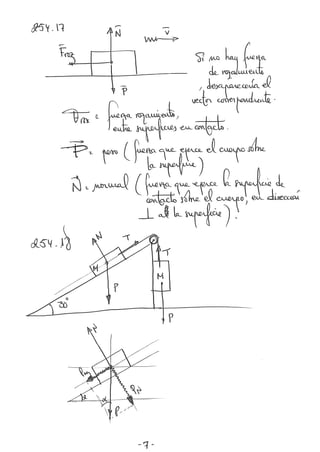 254.17
N
V
Froz
P
Si no hay fuerza
de rozamiento
, desaparecería el
vector correspondiente.
Froz = fuerza rozamiento,
entre superficies en contacto.
P = peso (fuerza que ejerce el cuerpo sobre
la superficie)
N = normal (fuerza que ejerce la superficie de
contacto sobre el cuerpo, en dirección
⊥ a la superficie).
254.18
N
T
T
M
M
P
30°
P
N
P
PN
-7-